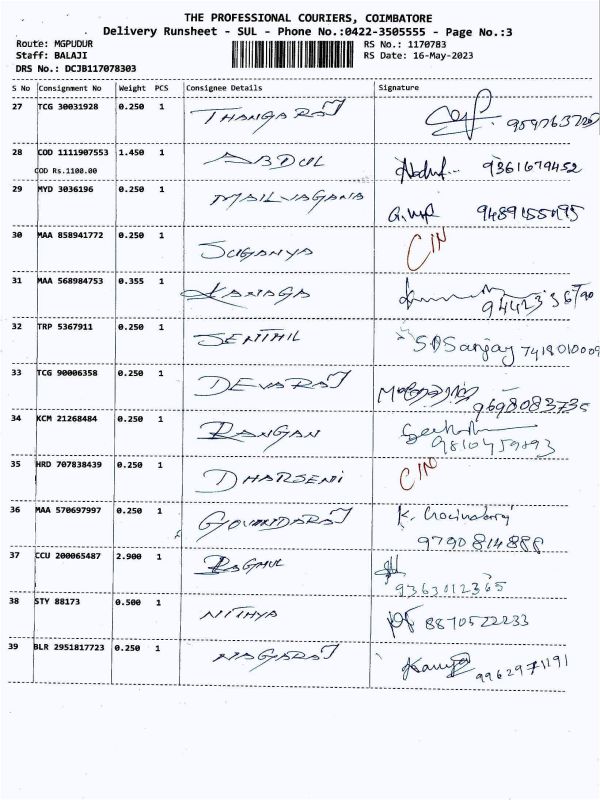 THE PROFESSIONAL COURIERS, COIMBATORE
Delivery Runsheet - SUL - Phone No.:0422-3505555 - Page No.:3
Route: MGPUDUR RS No.: 1170783
Staff: BALAJI RS Date: 16-May-2023
DRS No.: DCJB117078303
S No Consignment No Weight PCS Consignee Details Signature
27 TCG 30031928 0.250 1 THANGARAJ
28 COD 1111907553 1.450 1 ABDUL 9361679452
COD Rs.1100.00
29 MYD 3036196 0.250 1 MAILVAGANA
30 MAA 858941772 0.250 1 SUGANYA CIN
31 MAA 568984753 0.355 1 KANAGA
32 TRP 5367911 0.250 1 SENTHIL SPSanjay 7418010009
33 TCG 90006358 0.250 1 DEVARAJ
9698083735
34 KCM 21268484 0.250 1 RANGAN
35 HRD 707838439 0.250 1 DHARSENI CIN
36 MAA 570697997 0.250 1 GOVINDARAJ K. Govindaraj
9790814888
37 CCU 200065487 2.900 1 RAGHUL
9363012365
38 STY 88173 0.500 1 NITHYA 8870522233
39 BLR 2951817723 0.250 1 NAGARAJ
9962971191